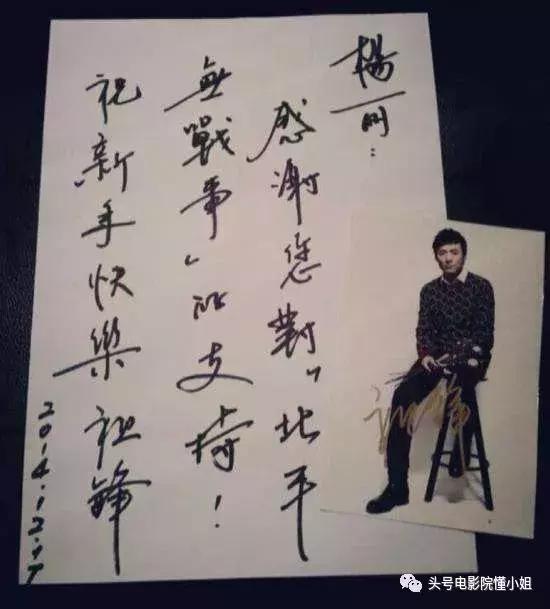 楊一刚：
感謝您對“北平
無戰事”的支持！
祝新年快樂 祖鋒
2014.12.17
祖鋒
头号电影院懂小姐